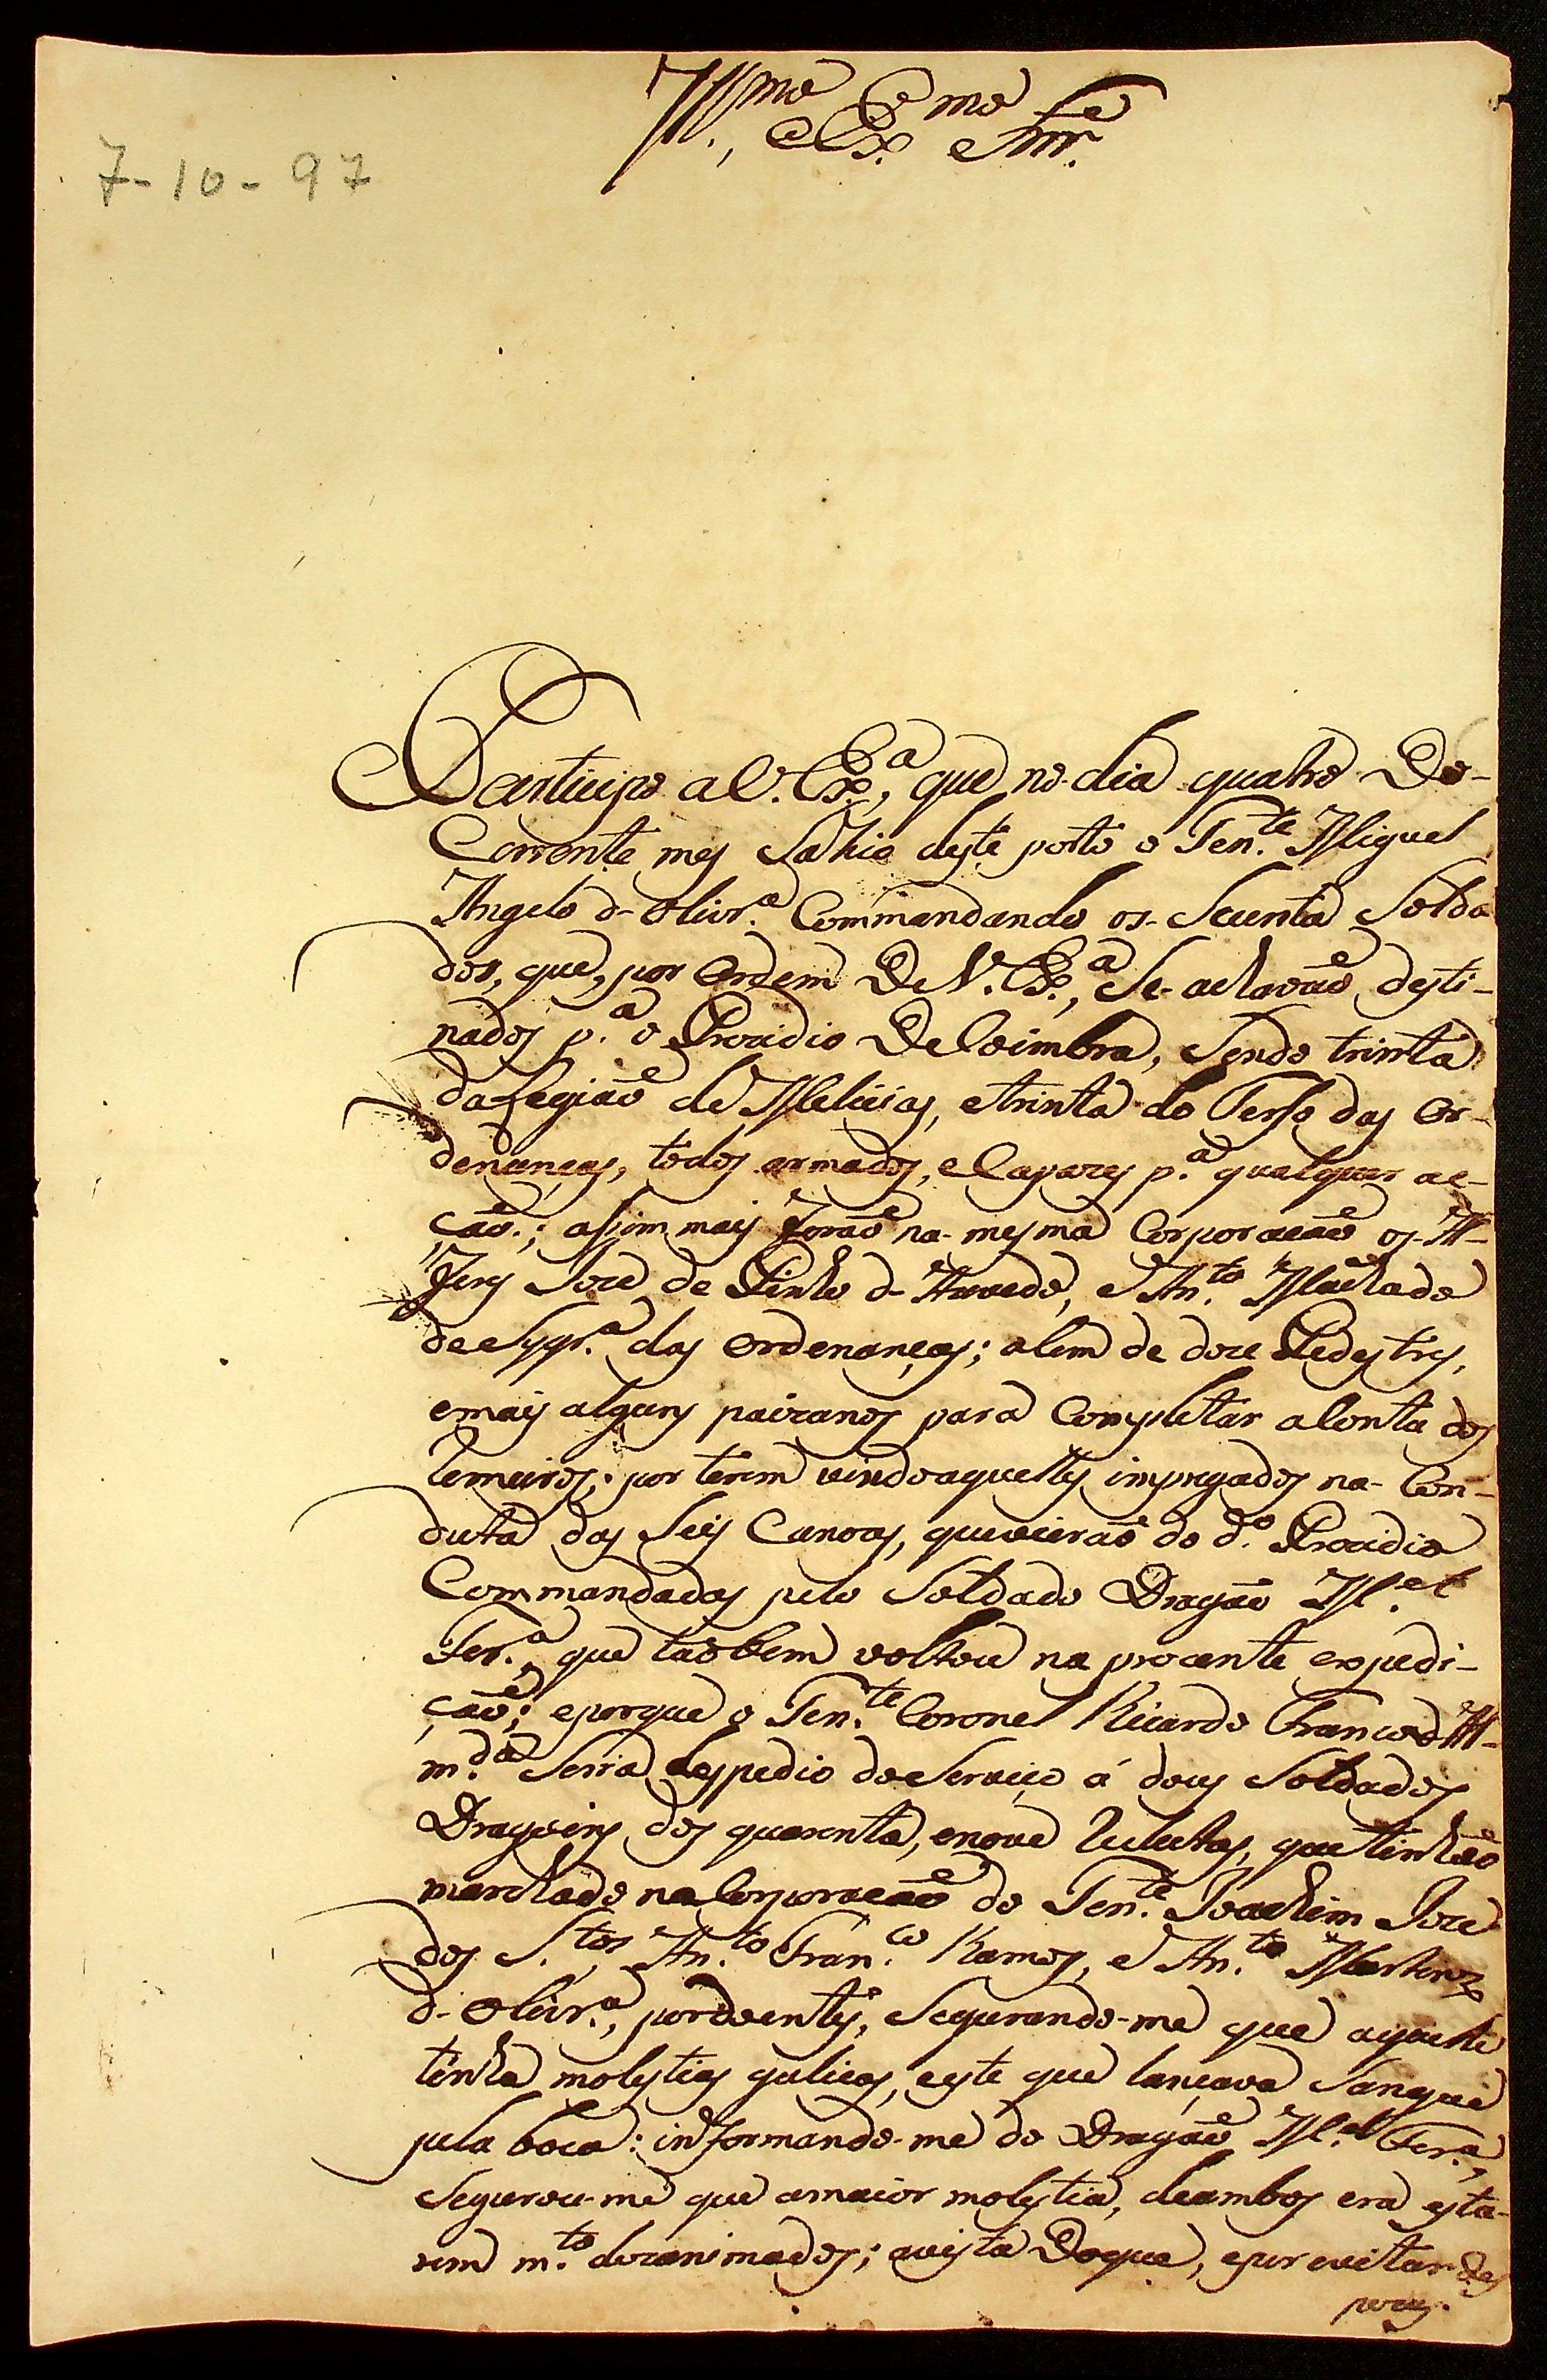 Ill.mo e Ex.mo Snr.
7-10-97
Participo a V. Ex.a, que no dia quatro do
Corrente mes Sahio deste porto o Ten.te Miguel
Angelo d-Olivr.a Commandando os Secenta Solda
dos, que, por Ordem De V. Ex.a, Se achavaõ desti-
nados p.a o Prezidio De Coimbra, Sendo trinta
da Legiaõ de Melicias, e trinta do Terso das Or-
denanças, todos armados, e Capazes p.a qualquer ac-
çaõ.; assim mais foraõ na mesma Corporacaõ os Al-
feres Joze de Pinho d-Azevedo, e An.to Machado
de Syqr.a das Ordenanças; alem de doze Pedestres,
e mais alguns paizanos para Completar a Conta dos
Remeiros; por terem vindo aquelles impregados na Con-
duta das Seis Canoas, que vieraõ do d.o Prezidio
Commandadas pelo Soldado Dragaõ M.el
Fer.a, que taõbem voltou na prezente expedi-
çaõ; e porque o Ten.te Coronel Ricardo Franco d'Al-
m.da Serra despedio do Serviço á dous Soldados
Dragoins dos quarenta, e nove Recutas, que tinhaõ
marchado na Corporacaõ do Ten.te Joachim Joze
dos S.tos, An.to Fran.co Ramos, e An.to Martins
d-Olivr.a, por doentes, Segurando-me que aquelle
tinha molestias galicas, e este que lançava Sangue
pela boca: informando-me do Dragaõ M.el Fer.a,
Segurou-me que a maior molestia, de ambos era esta-
rem m.to dezanimados; a vista Do que, e por evitar des
pezas.